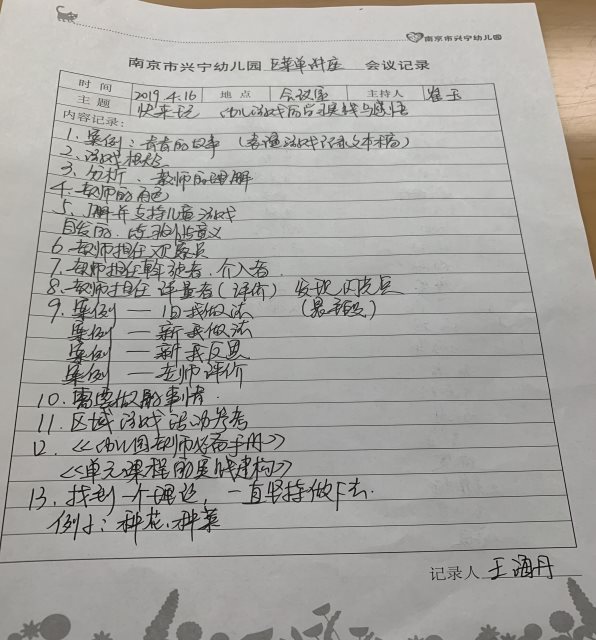 南京市兴宁幼儿园
南京市兴宁幼儿园 菜单讲座 会议记录
时间 2019.4.16 地点 会议室 主持人 崔玉
主题 快乐玩 幼儿游戏的学习实践与感悟
内容记录:
1. 案例:青青的故事(普通游戏 文本稿)
2. 游戏概念
3. 分析、教师的理解
4. 教师的角色
5. 理解并支持儿童游戏
自发的、 意义
6. 教师担任观察员
7. 教师担任 者、介入者.
8. 教师担任 评量者(评价) 发现闪光点
9. 案例 — 旧我做法 (最重要)
案例 — 新我做法
案例 — 新我反思
案例 — 老师评价
10. 需要做的事情.
11. 区域游戏活动参考
12. 《幼儿园教师必备手册》
《单元课程的实践建构》
13. 找到一个理论,一直坚持做下去.
例子:种花、种菜
记录人 王海丹